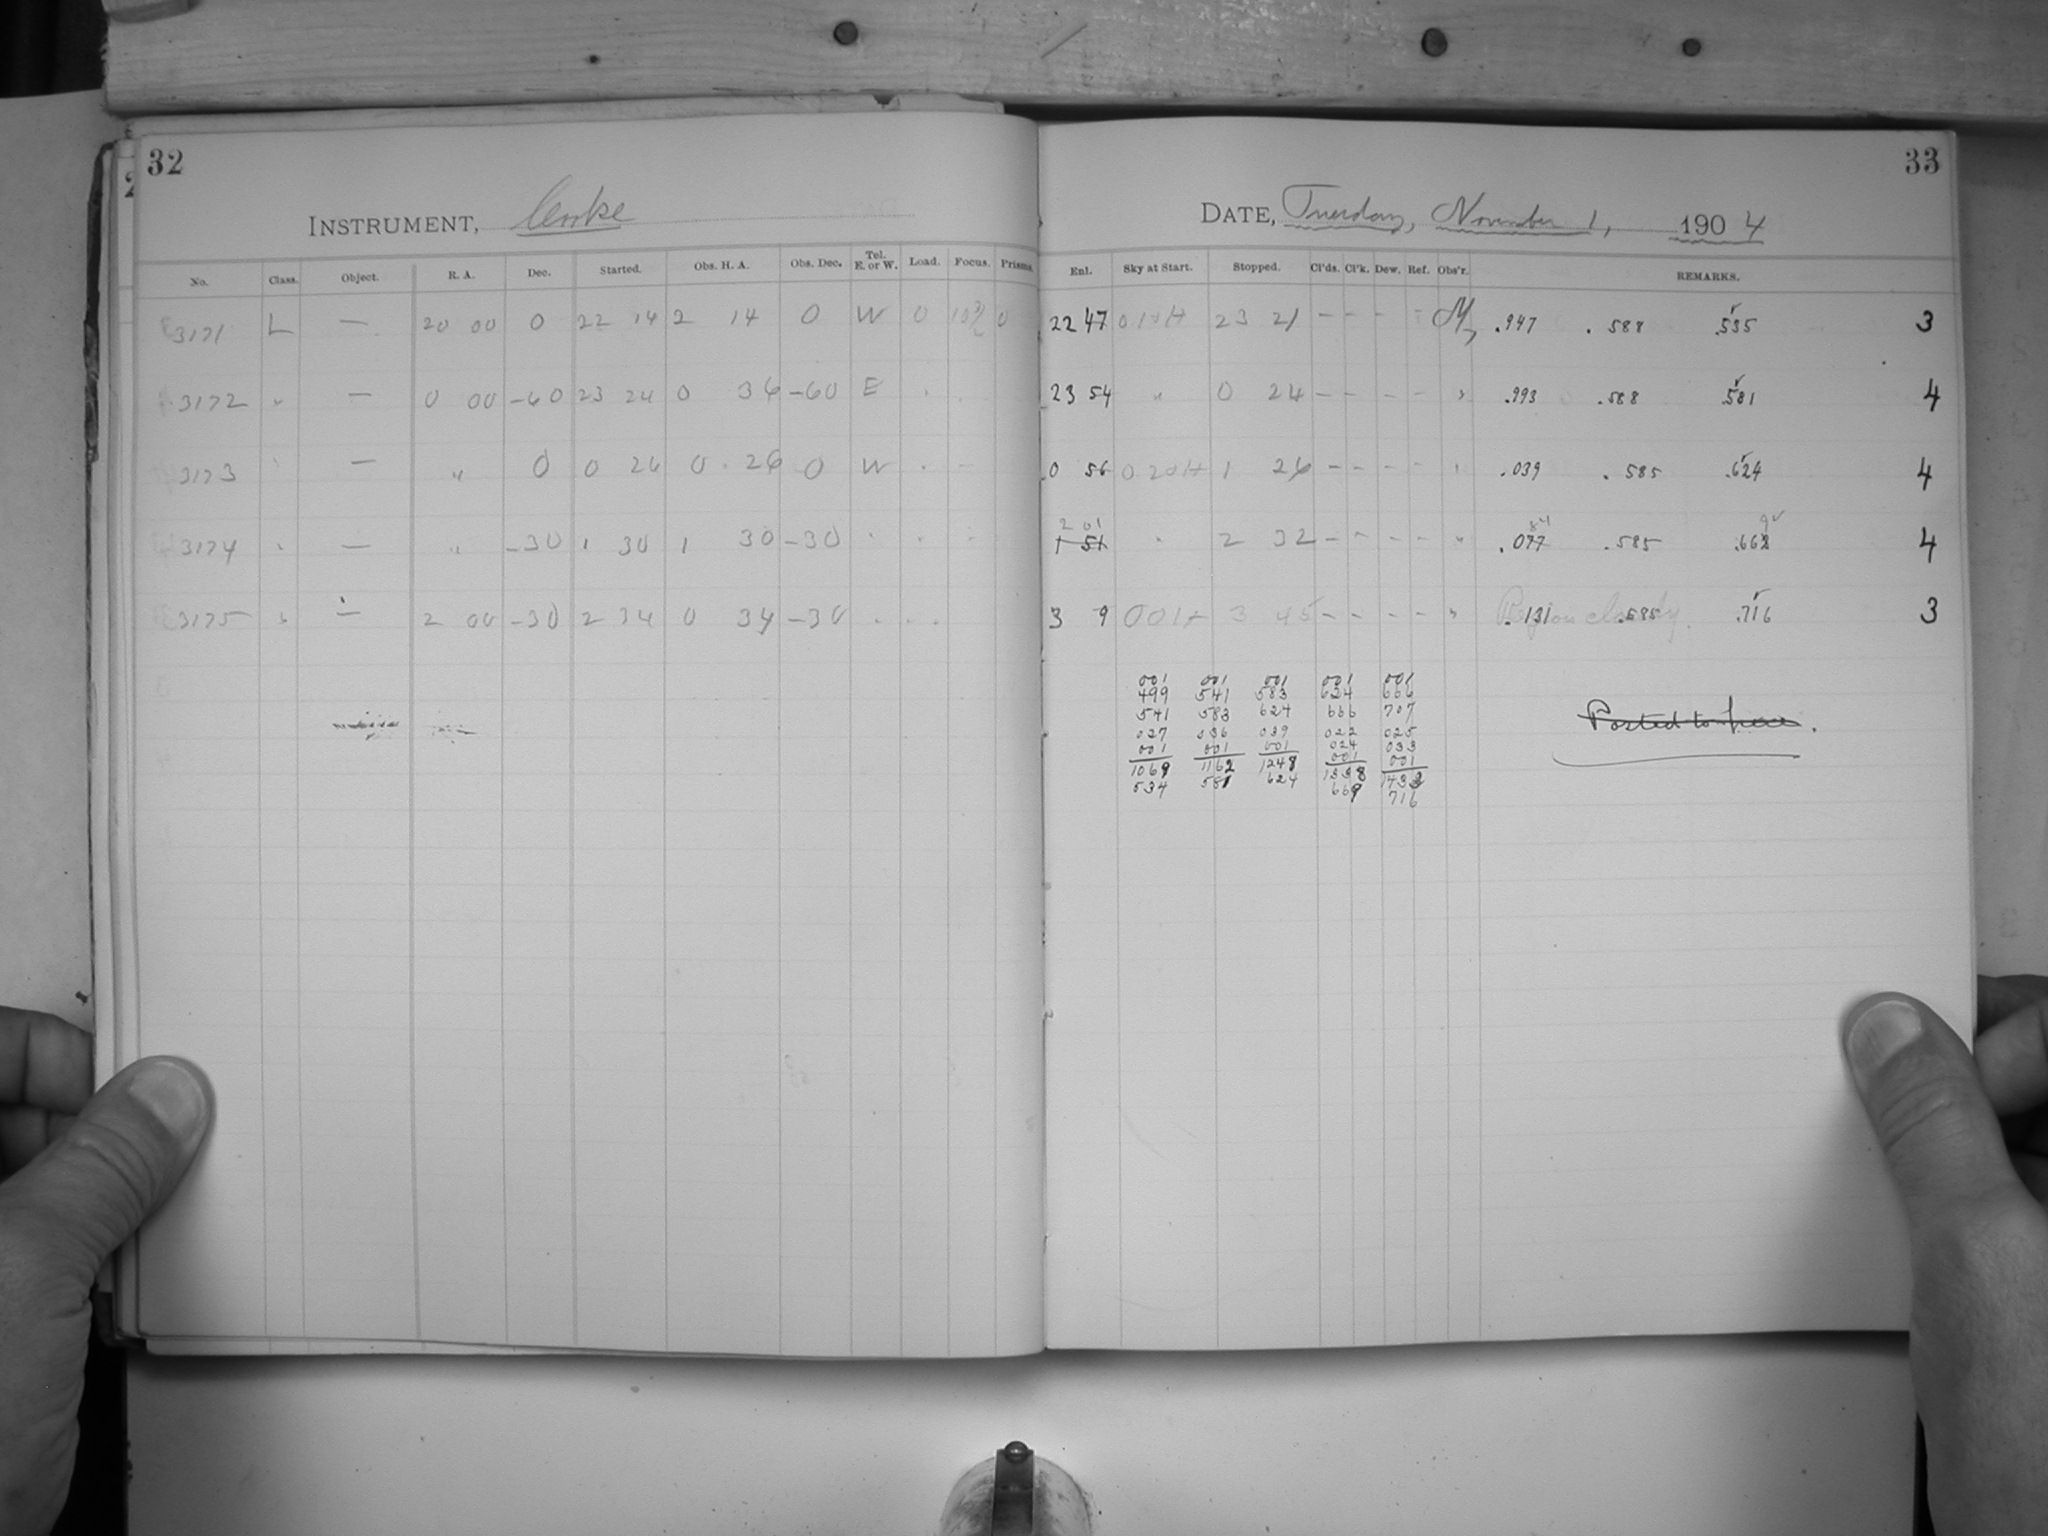 32
INSTRUMENT, Cooke
No. Class. Object. R. A. Dec. Started. Obs. H. A. Obs. Dec. Tel. E. or W. Load. Focus. Prisms.
3171 L — 20 00 0 22 14 2 14 0 W 0 0
3172 " — 0 00 -60 23 24 0 36 -60 E
3173 — " 0 0 26 0 26 0 W
3174 — " -30 1 30 1 30 -30
3175 " — 2 00 -30 2 34 0 34 -30
33
DATE, Tuesday, November 1, 1904
Enl. Sky at Start. Stopped. Cl'ds. Cl'k. Dew. Ref. Obs'r. REMARKS.
22 47 23 21 - - - - .947 .588 .535 3
23 54 " 0 24 - - - - " .993 .588 .581 4
0 56 1 26 - - - - .039 .585 .624 4
2 01
1 51 " 2 32 - - - - " .077 .585 .662 4
3 9 3 45 - - - - " .131 .585 .716 3
001 001 001 001 001
499 541 583 624 666
541 583 624 666 707
027 036 039 022 025
001 001 001 024 033
001 001
1069 1162 1248 1338 1433
534 581 624 669 716
Posted to here.